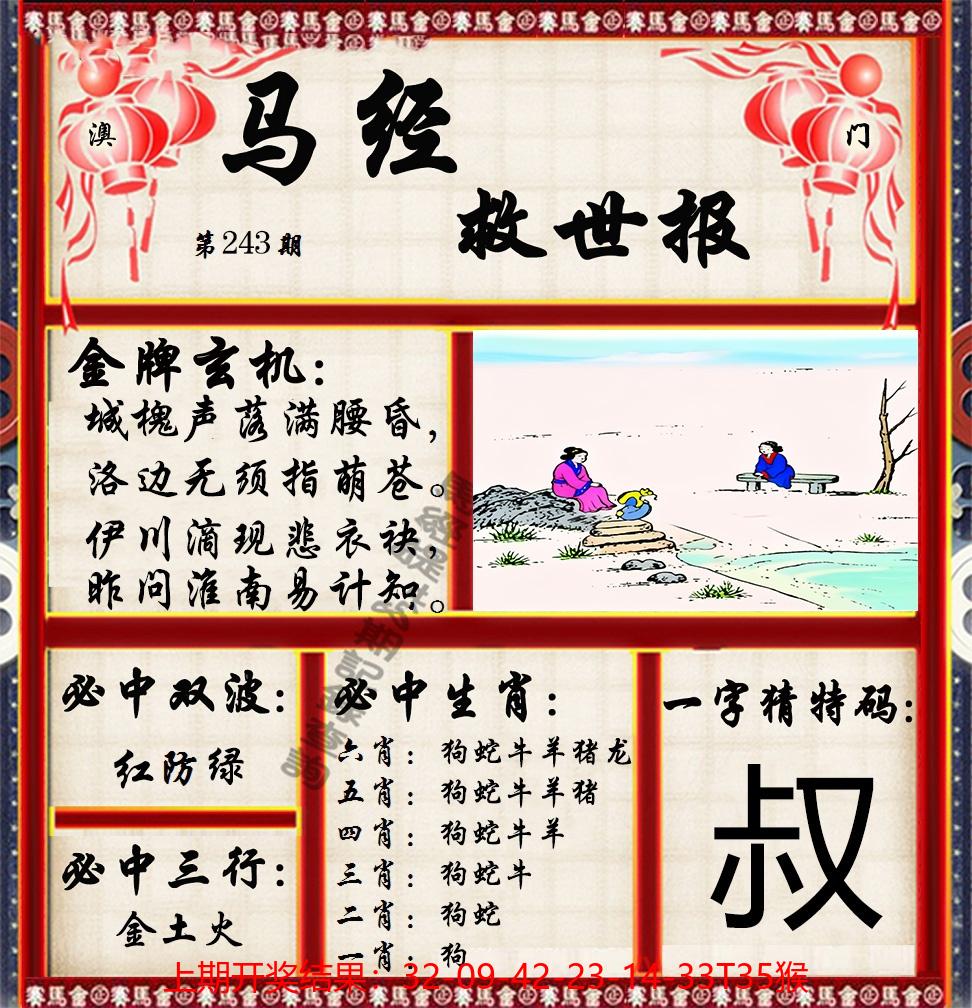 马经
澳
门
救世报
第243期
金牌玄机:
城槐声落满腰昏,
洛边无须指萌苍。
伊川滴现悲衣袂,
昨问淮南易计知。
必中双波:
红防绿
必中三行:
金土火
必中生肖:
六肖: 狗蛇牛羊猪龙
五肖: 狗蛇牛羊猪
四肖: 狗蛇牛羊
三肖: 狗蛇牛
二肖: 狗蛇
一肖: 狗
一字猜特码:
叔
上期开奖结果:32-09-42-23-14-33T35猴